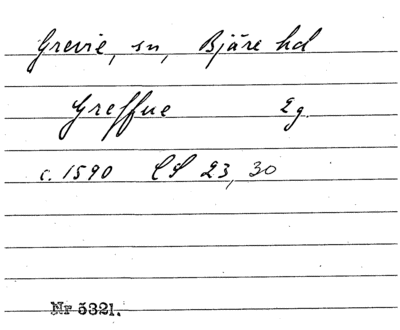 Grevie, sn, Bjäre hd
Greffue 2g.
c. 1590 LS 23, 30
Nr 5321.